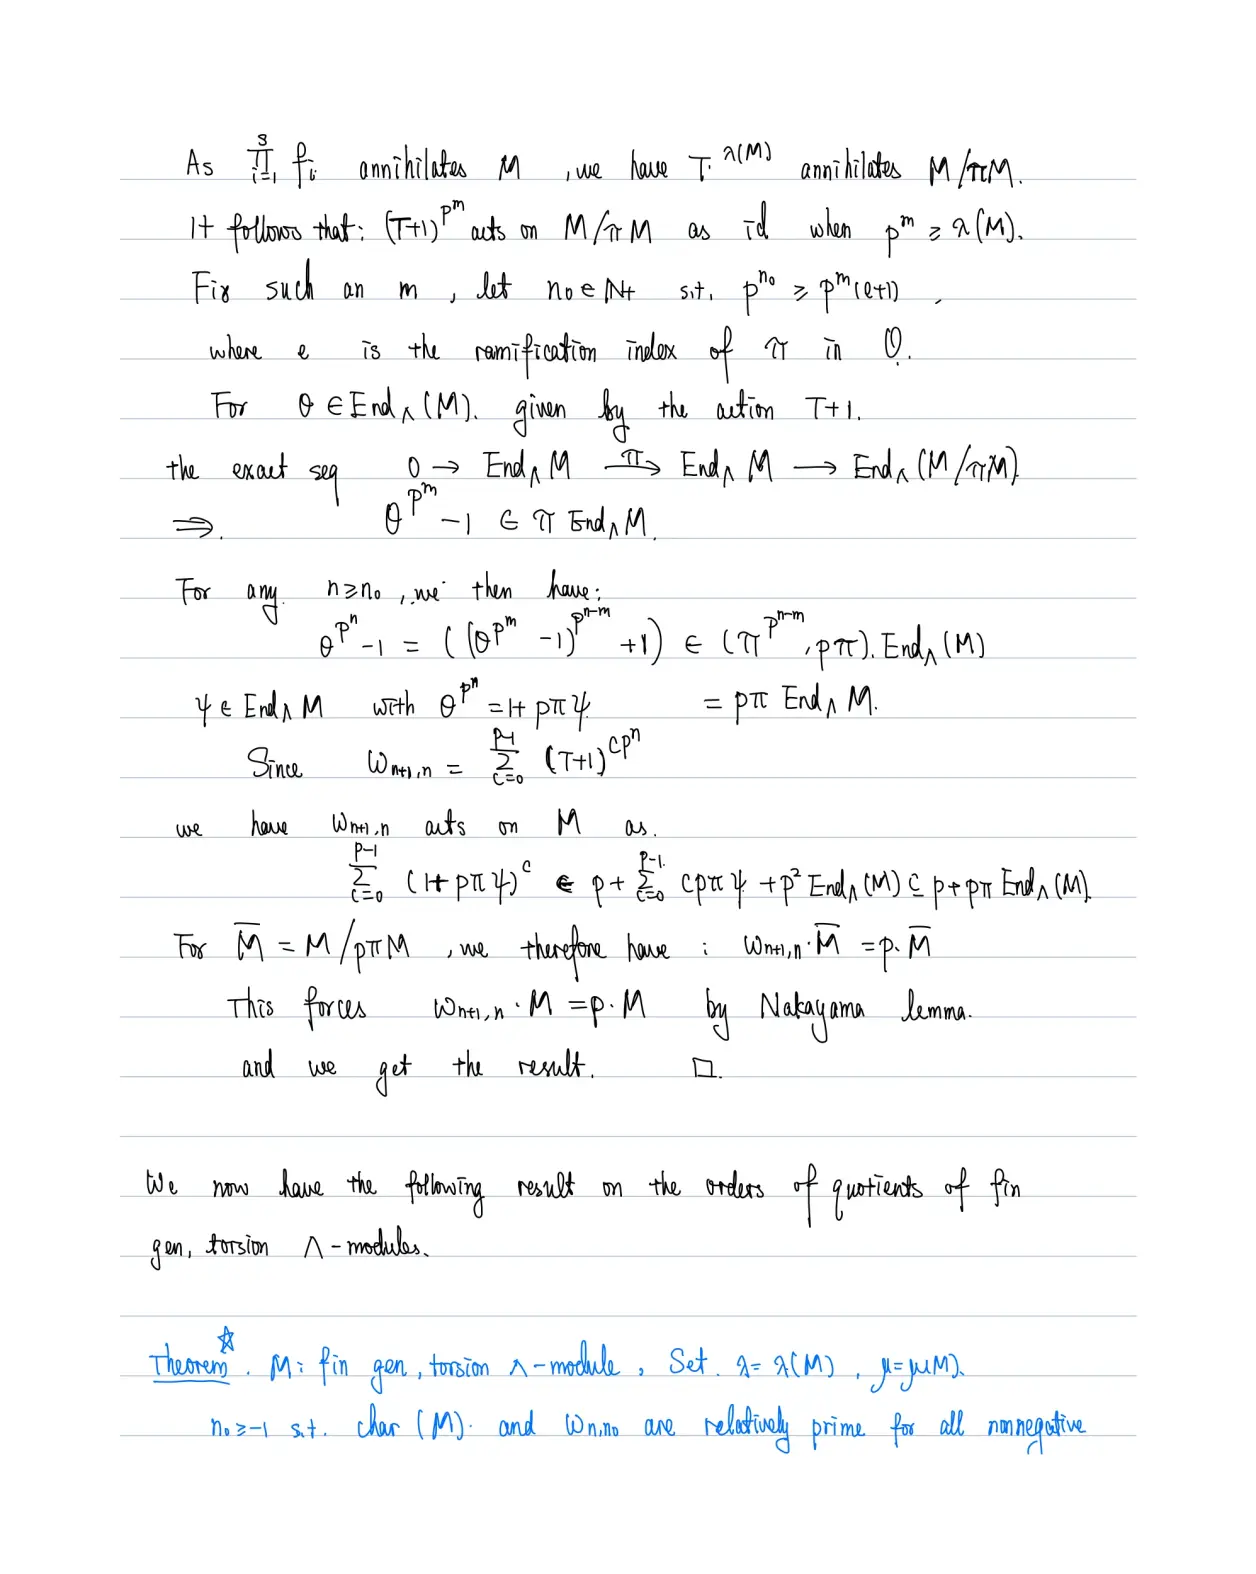 As ∏_{i=1}^{s} f_i annihilates M , we have T^{λ(M)} annihilates M/πM.
It follows that: (T+1)^{p^m} acts on M/πM as id when p^m ≥ λ(M).
Fix such an m , let n_0 ∈ N_+ s.t. p^{n_0} ≥ p^m(e+1) ,
where e is the ramification index of π in O.
For θ ∈ End_Λ(M). given by the action T+1.
the exact seq 0 → End_Λ M —π→ End_Λ M → End_Λ (M/πM).
⇒. θ^{p^m} -1 ∈ π End_Λ M.
For any. n≥n_0 , we then have:
θ^{p^n} -1 = ( (θ^{p^m} -1)^{p^{n-m}} +1) ∈ (π^{p^{n-m}}, pπ). End_Λ (M)
ψ ∈ End_Λ M with θ^{p^n} = 1+ pπψ = pπ End_Λ M.
Since ω_{n+1,n} = ∑_{c=0}^{p-1} (T+1)^{cp^n}
we have ω_{n+1,n} acts on M as.
∑_{c=0}^{p-1} (1+ pπψ)^c ∈ p + ∑_{c=0}^{p-1} cpπψ + p² End_Λ(M) ⊆ p + pπ End_Λ(M).
For M̄ = M/pπM , we therefore have : ω_{n+1,n}·M̄ = p·M̄
This forces ω_{n+1,n}·M = p·M by Nakayama lemma.
and we get the result. □.
We now have the following result on the orders of quotients of fin
gen, torsion Λ-modules.
Theorem☆. M: fin gen, torsion Λ-module , Set. λ= λ(M) , μ=μ(M).
n_0 ≥ -1 s.t. char (M). and ω_{n,n_0} are relatively prime for all nonnegative